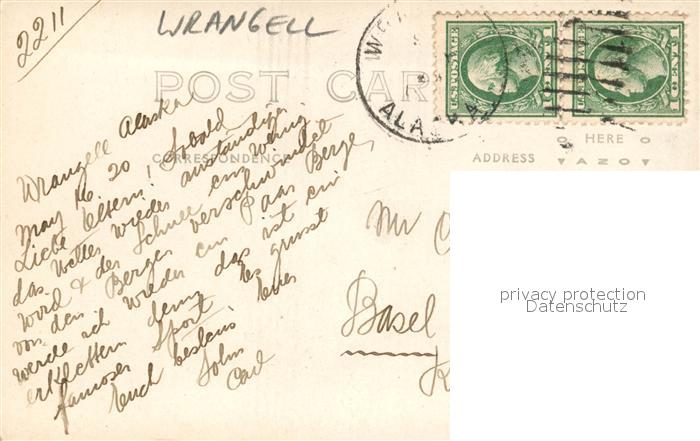 2211
WRANGELL
POST CAR
CORRESPONDENC
ADDRESS
HERE
AZO
U.S. POSTAGE
1 CENT 1
ALASKA
Wrangell Alaska
May 16. 20
Liebe Eltern! Sobald
das Wetter wieder anständiger
wird & der Schnee ein wenig
von den Bergen verschwindet
werde ich wieder ein Paar Berge
erklettern denn das ist ein
famoser Sport. Es grüsst
Euch bestens Euer
Sohn
Carl
Mr
Basel
privacy protection
Datenschutz